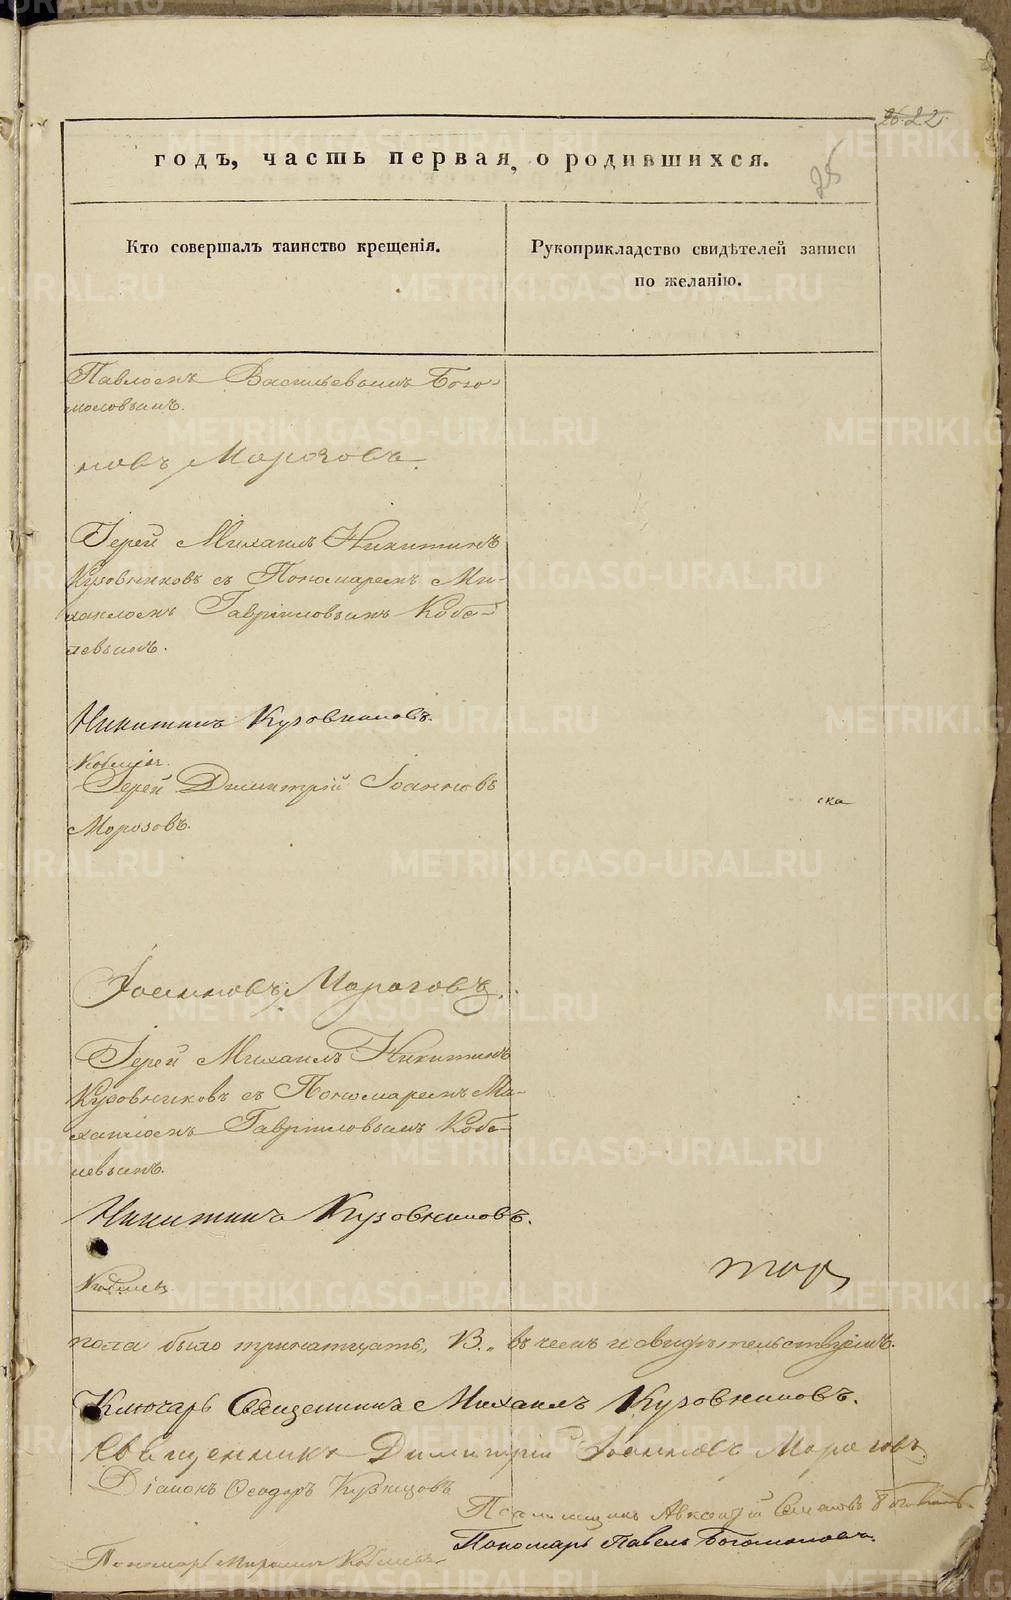 22.
25
годъ, часть первая, о родившихся.
Кто совершалъ таинство крещенія.
Рукоприкладство свидѣтелей записи
по желанію.
Павломъ Васильевымъ Бого-
моловымъ.
новъ Морозовъ.
Іерей Михаилъ Никитинъ
Кузовниковъ съ Пономаремъ Ми-
хаиломъ Гавріиловымъ Кобе-
левымъ.
Никитинъ Кузовниковъ.
Іерей Димитрій Іоанновъ
Морозовъ.
ска
Іоанновъ Морозовъ.
Іерей Михаилъ Никитинъ
Кузовниковъ съ Пономаремъ Ми-
хаиломъ Гавріиловымъ Кобе-
левымъ.
Никитинъ Кузовниковъ.
тор
пола было тринатцать, 13., въ чемъ и свидѣтельствуемъ.
Ключарь Священникъ Михаилъ Кузовниковъ.
Священникъ Димитрій Іоанновъ Морозовъ
Діаконъ Ѳеодоръ Кузнецовъ
Пономарь Павелъ Богомоловъ.
Пономарь Михаилъ Кобелевъ.
METRIKI.GASO-URAL.RU